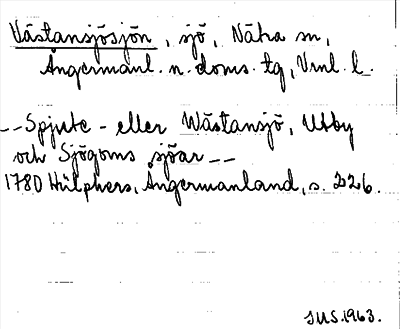 Västansjösjön, sjö, Nätra sn,
Ångermanl. n. doms. tg, Vnl. l.
--Spjute- eller Wästansjö, Utby
och Sjögoms sjöar--
1780 Hülphers, Ångermanland, s. 226.
IUS.1963.